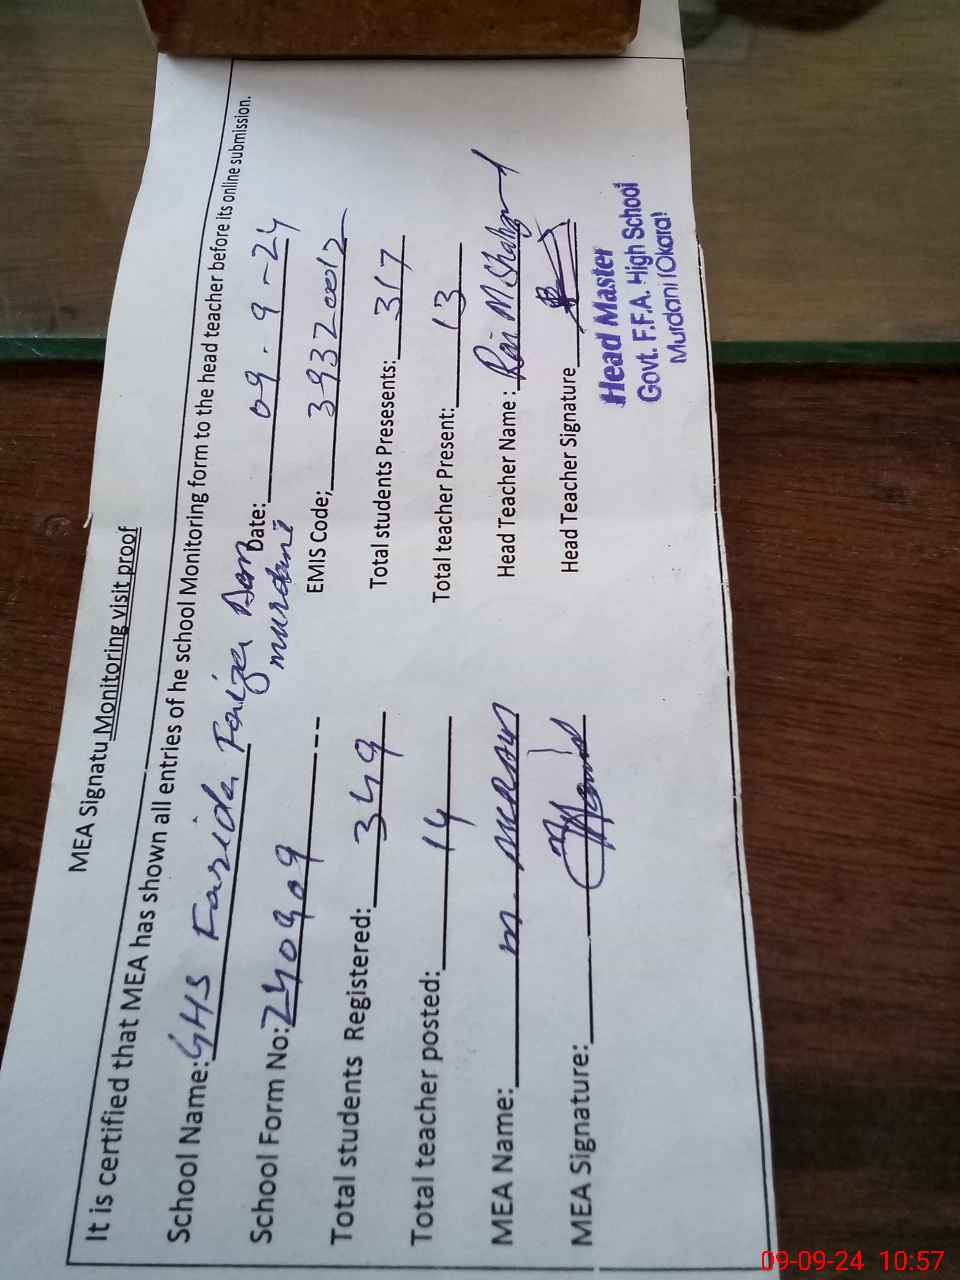 MEA Signatu Monitoring visit proof
It is certified that MEA has shown all entries of he school Monitoring form to the head teacher before its online submission.
School Name: GHS Farida Faiza Date: 09-9-24
murdani
School Form No: 240909 EMIS Code; 39320012
Total students Registered: 349 Total students Presesents: 317
Total teacher posted: 14 Total teacher Present: 13
MEA Name: M. Head Teacher Name : Rai M
MEA Signature: Head Teacher Signature
Head Master
Govt. F.F.A. High School
Murdani (Okara)
09-09-24 10:57